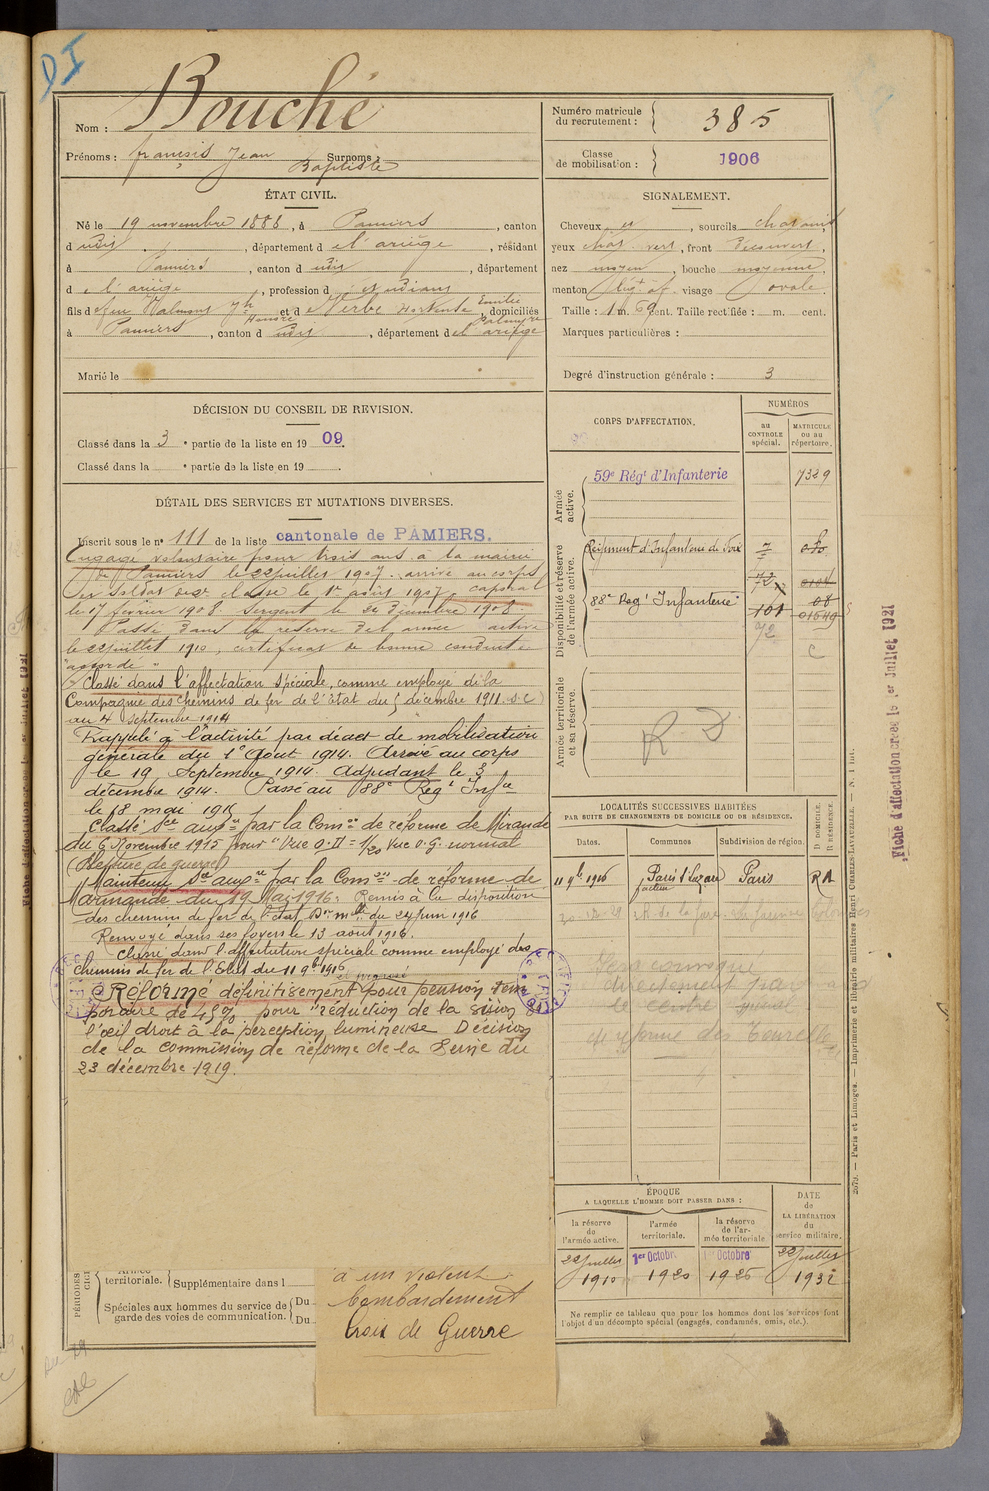 DI
Nom : Bouché
Prénoms : françois Jean Baptiste Surnoms :
Numéro matricule du recrutement : 385
Classe de mobilisation : 1906
ÉTAT CIVIL.
Né le 19 novembre 1888, à Pamiers, canton
dudit, département de l'ariège, résidant
à Pamiers, canton dudit, département
de l'ariège, profession d'étudiant
fils de feu Jph Honoré et de Verbe Hortense Emilie Palmyre, domiciliés
à Pamiers, canton dudit, département de l'ariège
Marié le
SIGNALEMENT.
Cheveux et, sourcils chatains
yeux chat. vert, front découvert,
nez moyen, bouche moyenne,
menton visage ovale.
Taille : 1 m. 69 cent. Taille rectifiée : m. cent.
Marques particulières :
Degré d'instruction générale : 3
DÉCISION DU CONSEIL DE REVISION.
Classé dans la 3e partie de la liste en 1909.
Classé dans la e partie de la liste en 19 .
DÉTAIL DES SERVICES ET MUTATIONS DIVERSES.
Inscrit sous le no 111 de la liste cantonale de PAMIERS.
Engagé volontaire pour trois ans à la mairie
de Pamiers le 22 juillet 1907. arrivé au corps
et soldat de 2e classe le 1er août 1907. caporal
le 17 février 1908. Sergent le 1908.
Passé dans la réserve de l'armée active
le 22 juillet 1910, certificat de bonne conduite
"accordé"
Classé dans l'affectation spéciale, comme employé de la
Compagnie des chemins de fer de l'État du 5 décembre 1911. S.C)
au 4 Septembre 1914
Rappelé à l'activité par décret de mobilisation
générale du 1er Aout 1914. Arrivé au corps
le 19 Septembre 1914. Adjudant le 3
décembre 1914. Passé au 88e Régt Infie
le 18 mai 1915
Classé Sce auxre par la Comon de réforme de Mirande
du 6 Novembre 1915 pour "Vue O.D = 1/20 Vue O.G. normal
(Blessure de guerre)
Maintenu Sce auxre par la Comon de réforme de
Marmande du 19 Mai 1916. Remis à la disposition
des chemins de fer de l'État, Don mlle du 24 juin 1916
Renvoyé dans ses foyers le 13 août 1916.
Classé dans l'affectation spéciale comme employé des
chemins de fer de l'État du 11 9bre 1916
Réformé définitivement et proposé pour pension tem
poraire de 45% pour "réduction de la vision de
l'œil droit à la perception lumineuse Décision
de la commission de réforme de la Seine du
23 décembre 1919.
CORPS D'AFFECTATION.
NUMÉROS
au CONTROLE spécial.
MATRICULE ou au répertoire.
Armée active.
59e Régt d'Infanterie 7329
Disponibilité et réserve de l'armée active.
Régiment d'Infanterie de Foix
88e Régt Infanterie
101 01549
72
C
Armée territoriale et sa réserve.
R D
LOCALITÉS SUCCESSIVES HABITÉES
PAR SUITE DE CHANGEMENTS DE DOMICILE OU DE RÉSIDENCE.
Dates. Communes Subdivision de région. D DOMICILE. R RÉSIDENCE.
11 9bre 1916 Paris St Lazare facteur Paris RA
Sera convoqué
directement par
le centre spécial
de réforme des Tourelles
ÉPOQUE
A LAQUELLE L'HOMME DOIT PASSER DANS :
la réserve de l'armée active.
l'armée territoriale.
la réserve de l'armée territoriale.
DATE de LA LIBÉRATION du service militaire.
22 juillet 1910
1er Octobre 1920
1er Octobre 1926
22 juillet 1932
Ne remplir ce tableau que pour les hommes dont les services font
l'objet d'un décompte spécial (engagés, condamnés, omis, etc.).
PÉRIODES
territoriale. Supplémentaire dans l
Spéciales aux hommes du service de garde des voies de communication. Du
Du
à un violent
bombardement
Croix de Guerre
Fiche d'affectation créée le 1er Juillet 1921
2073. — Paris et Limoges. — Imprimerie et librairie militaires Henri CHARLES-LAVAUZELLE. — N. 1 int.